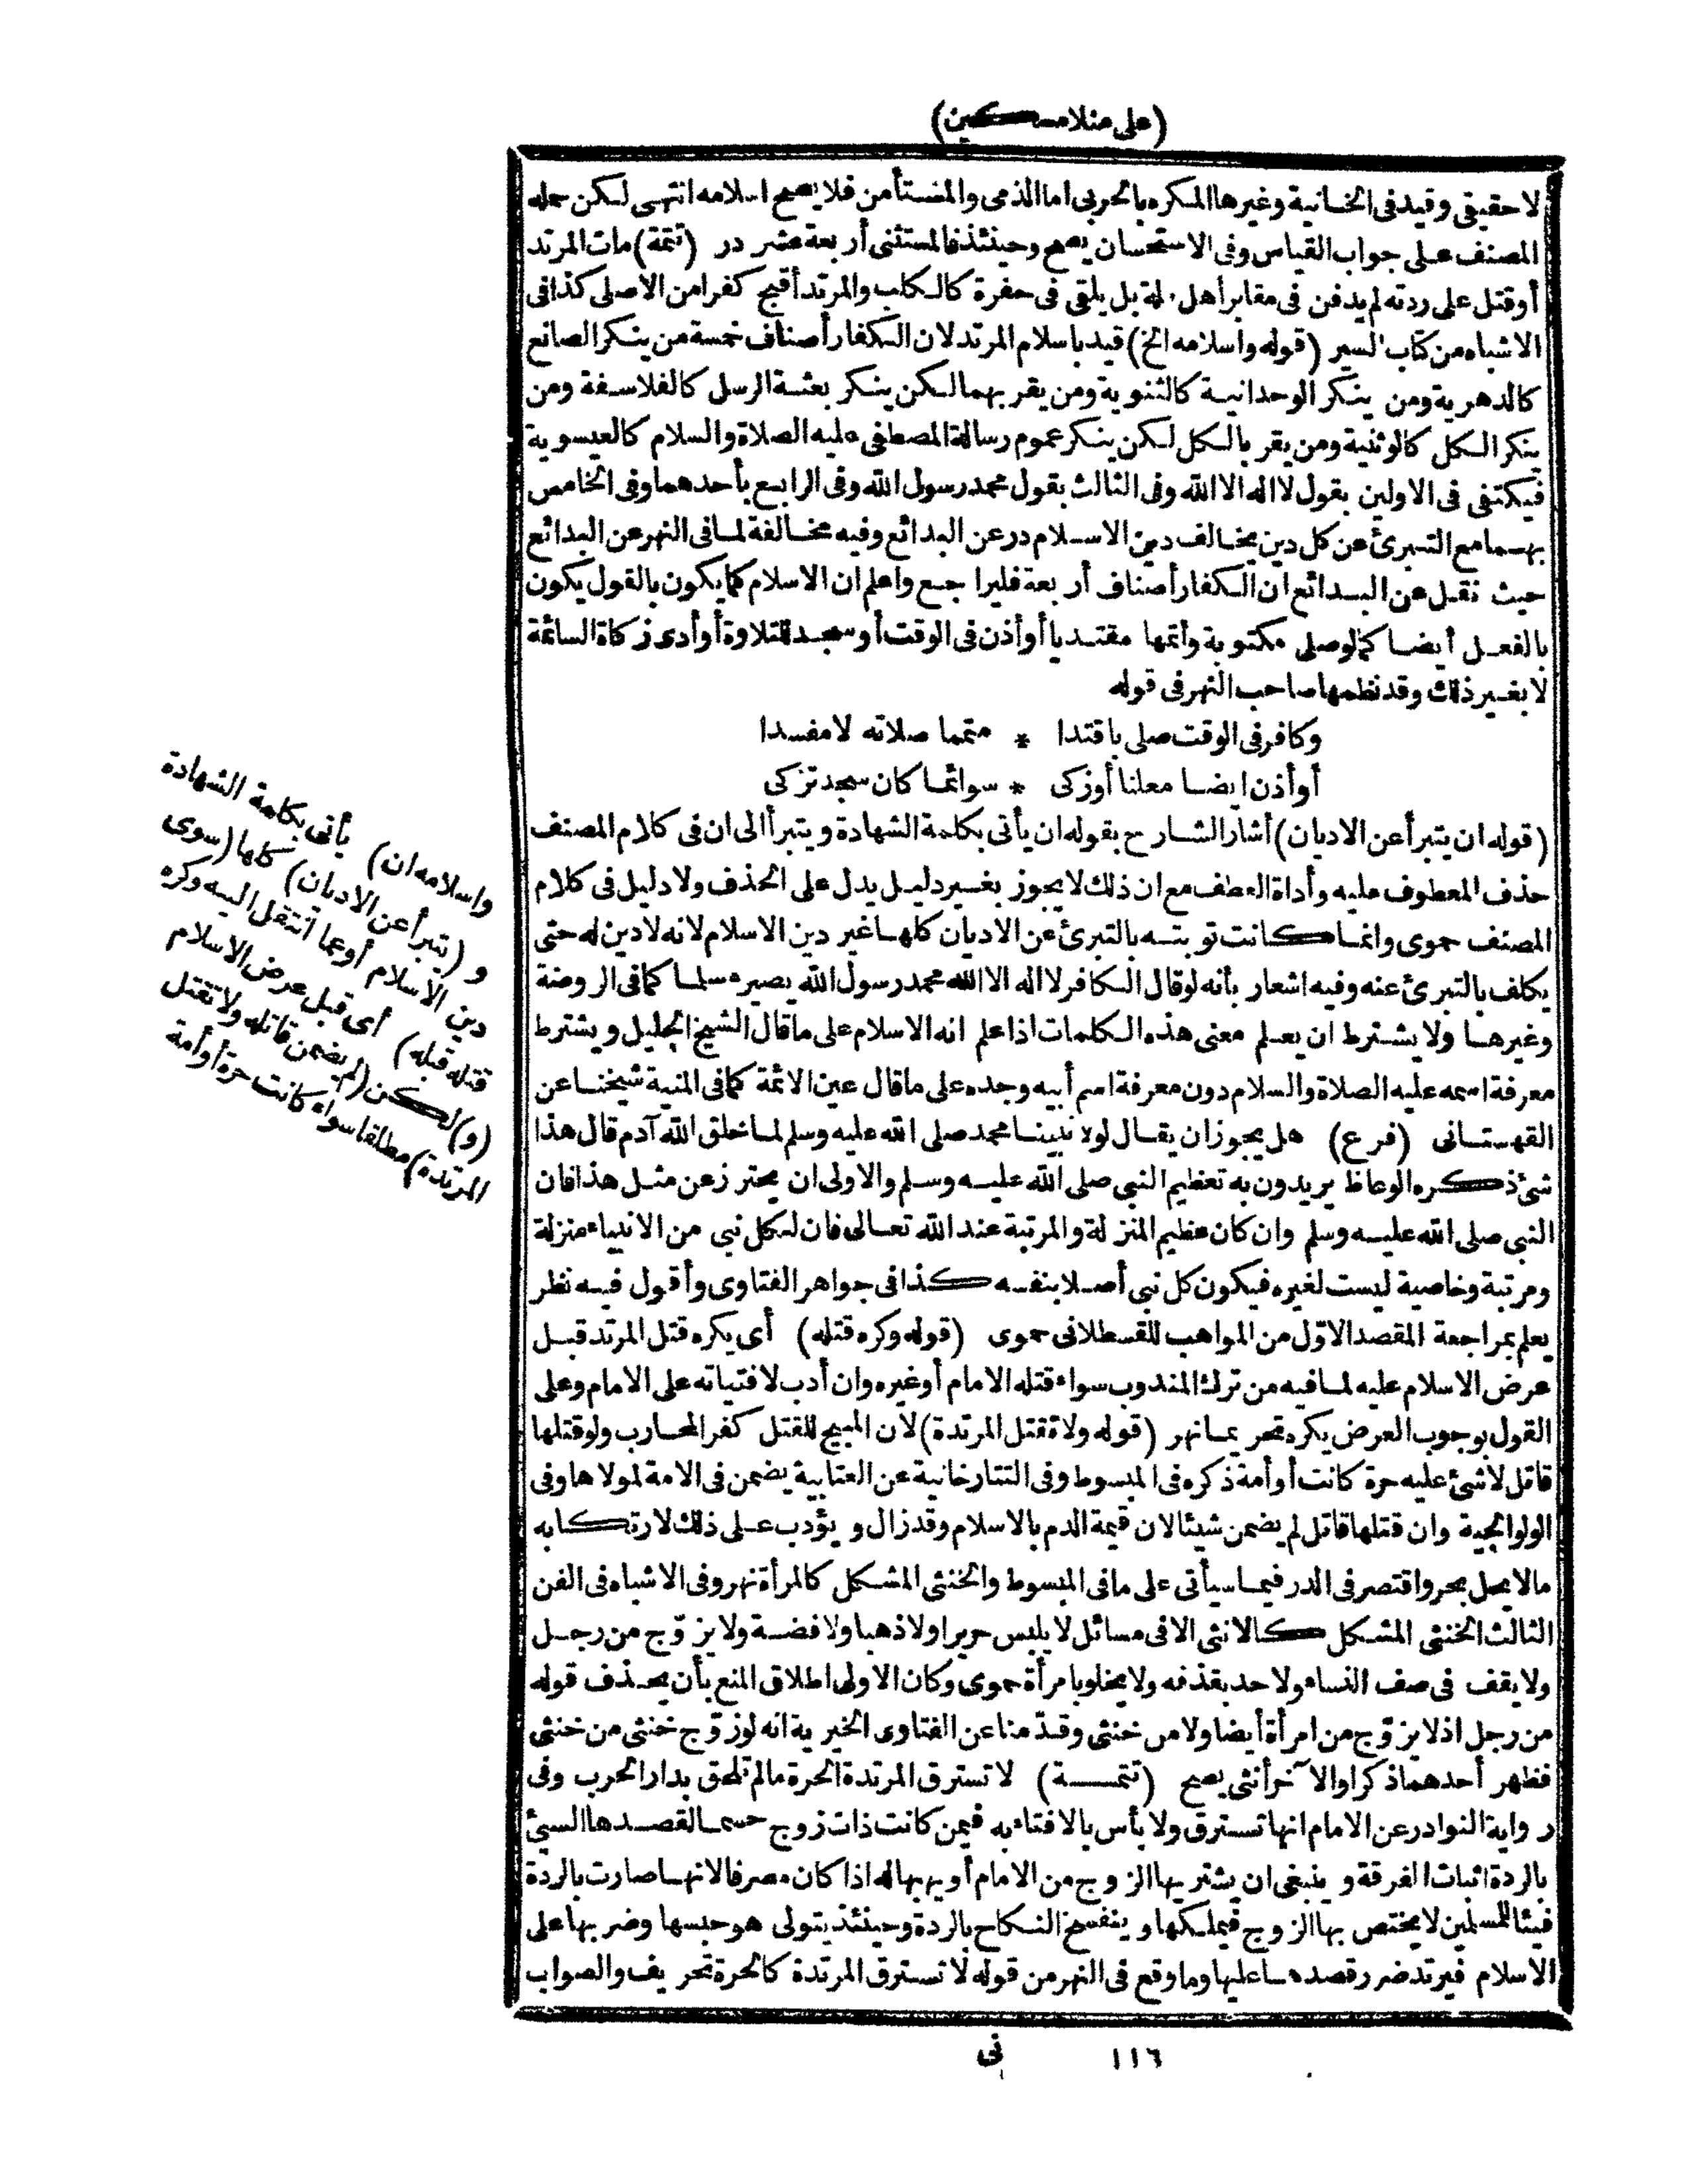 (على منلا مسكين)
لا حقيقى وقيد فى الخانية وغيرها المكره بالحربى اما الذمى والمستأمن فلا يصح اسلامه انتهى لكن حمله
المصنف على جواب القياس وفى الاستحسان يصح وحينئذ فالمستثنى أربعة عشر در (تتمة) مات المرتد
أو قتل على ردته لم يدفن فى مقابر أهل ملة بل يلقى فى حفرة كالكلب والمرتد أقبح كفرا من الاصلى كذا فى
الاشباه من كتاب السير (قوله واسلامه الخ) قيد باسلام المرتد لان الكفار أصناف خمسة من ينكر الصانع
كالدهرية ومن ينكر الوحدانية كالثنوية ومن يقر بهما لكن ينكر بعثة الرسل كالفلاسفة ومن
ينكر الكل كالوثنية ومن يقر بالكل لكن ينكر عموم رسالة المصطفى عليه الصلاة والسلام كالعيسوية
فيكتفى فى الاولين بقول لا اله الا الله وفى الثالث بقول محمد رسول الله وفى الرابع بأحدهما وفى الخامس
بهما مع التبرئ عن كل دين يخالف دين الاسلام در عن البدائع وفيه مخالفة لما فى النهر عن البدائع
حيث نقل عن البدائع ان الكفار أصناف أربعة فليراجع واعلم ان الاسلام كما يكون بالقول يكون
بالفعل أيضا كما لو صلى مكتوبة وأتمها مقتديا أو أذن فى الوقت أو سجد للتلاوة أو أدى زكاة السائمة
لا بغير ذلك وقد نظمها صاحب النهر فى قوله
وكافر فى الوقت صلى باقتدا * متمما صلاته لا مفسدا
أو أذن ايضا معلنا أو زكى * سوائما كان سجد تزكى
(قوله ان يتبرأ عن الاديان) أشار الشارح بقوله ان يأتى بكلمة الشهادة ويتبرأ الى ان فى كلام المصنف
حذف المعطوف عليه وأداة العطف مع ان ذلك لا يجوز بغير دليل يدل على الحذف ولا دليل فى كلام
المصنف حموى وانما كانت توبته بالتبرئ عن الاديان كلها غير دين الاسلام لانه لا دين له حتى
يكلف بالتبرئ عنه وفيه اشعار بأنه لو قال الكافر لا اله الا الله محمد رسول الله يصير مسلما كما فى الروضة
وغيرها ولا يشترط ان يعلم معنى هذه الكلمات اذا علم انه الاسلام على ما قال الشيخ الجليل ويشترط
معرفة اسمه عليه الصلاة والسلام دون معرفة اسم أبيه وجده على ما قال عين الائمة كما فى المنية شيخنا عن
القهستانى (فرع) هل يجوز ان يقال لولا نبينا محمد صلى الله عليه وسلم لما خلق الله آدم قال هذا
شئ ذكره الوعاظ يريدون به تعظيم النبى صلى الله عليه وسلم والاولى ان يحترز عن مثل هذا فان
النبى صلى الله عليه وسلم وان كان عظيم المنزلة والمرتبة عند الله تعالى فان لكل نبى من الانبياء منزلة
ومرتبة وخاصية ليست لغيره فيكون كل نبى أصلا بنفسه كذا فى جواهر الفتاوى وأقول فيه نظر
يعلم بمراجعة المقصد الاوّل من المواهب للقسطلانى حموى (قوله وكره قتله) أى يكره قتل المرتد قبل
عرض الاسلام عليه لما فيه من ترك المندوب سواء قتله الامام أو غيره وان أدب لافتياته على الامام وعلى
القول بوجوب العرض يكره تحريما نهر (قوله ولا تقتل المرتدة) لان المبيح للقتل كفر المحارب ولو قتلها
قاتل لا شئ عليه حرة كانت أو أمة ذكره فى المبسوط وفى التتارخانية عن العتابية يضمن فى الامة لمولاها وفى
الولوالجية وان قتلها قاتل لم يضمن شيئا لان قيمة الدم بالاسلام وقد زال ويؤدب على ذلك لارتكابه
ما لا يحل بحر واقتصر فى الدر فيما سيأتى على ما فى المبسوط والخنثى المشكل كالمرأة نهر وفى الاشباه فى الفن
الثالث الخنثى المشكل كالانثى الا فى مسائل لا يلبس حريرا ولا ذهبا ولا فضة ولا يزوّج من رجل
ولا يقف فى صف النساء ولا حد بقذفه ولا يخلو بامرأة حموى وكان الاولى اطلاق المنع بأن يحذف قوله
من رجل اذ لا يزوّج من امرأة أيضا ولا من خنثى وقدّمنا عن الفتاوى الخيرية انه لو زوّج خنثى من خنثى
فظهر أحدهما ذكرا والآخر أنثى يصح (تتمـــة) لا تسترق المرتدة الحرة ما لم تلحق بدار الحرب وفى
رواية النوادر عن الامام انها تسترق ولا بأس بالافتاء به فيمن كانت ذات زوج حسما لقصدها السيئ
بالردة اثبات الفرقة وينبغى ان يشتريها الزوج من الامام أو يهبها له اذا كان مصرفا لانها صارت بالردة
فيئا للمسلمين لا يختص بها الزوج فيملكها وينفسخ النكاح بالردة وحينئذ يتولى هو حبسها وضربها على
الاسلام فيرتد ضرر قصدها عليها وما وقع فى النهر من قوله لا تسترق المرتدة كالحرة تحريف والصواب
واسلامه ان) يأتى بكلمة الشهادة
و (يتبرأ عن الاديان) كلها (سوى
دين الاسلام أو عما انتقل اليه وكره
قتله قبله) أى قبل عرض الاسلام
(و) لكن (لم يضمن قاتله ولا تقتل
المرتدة) مطلقا سواء كانت حرة أو أمة
١١٦ نى